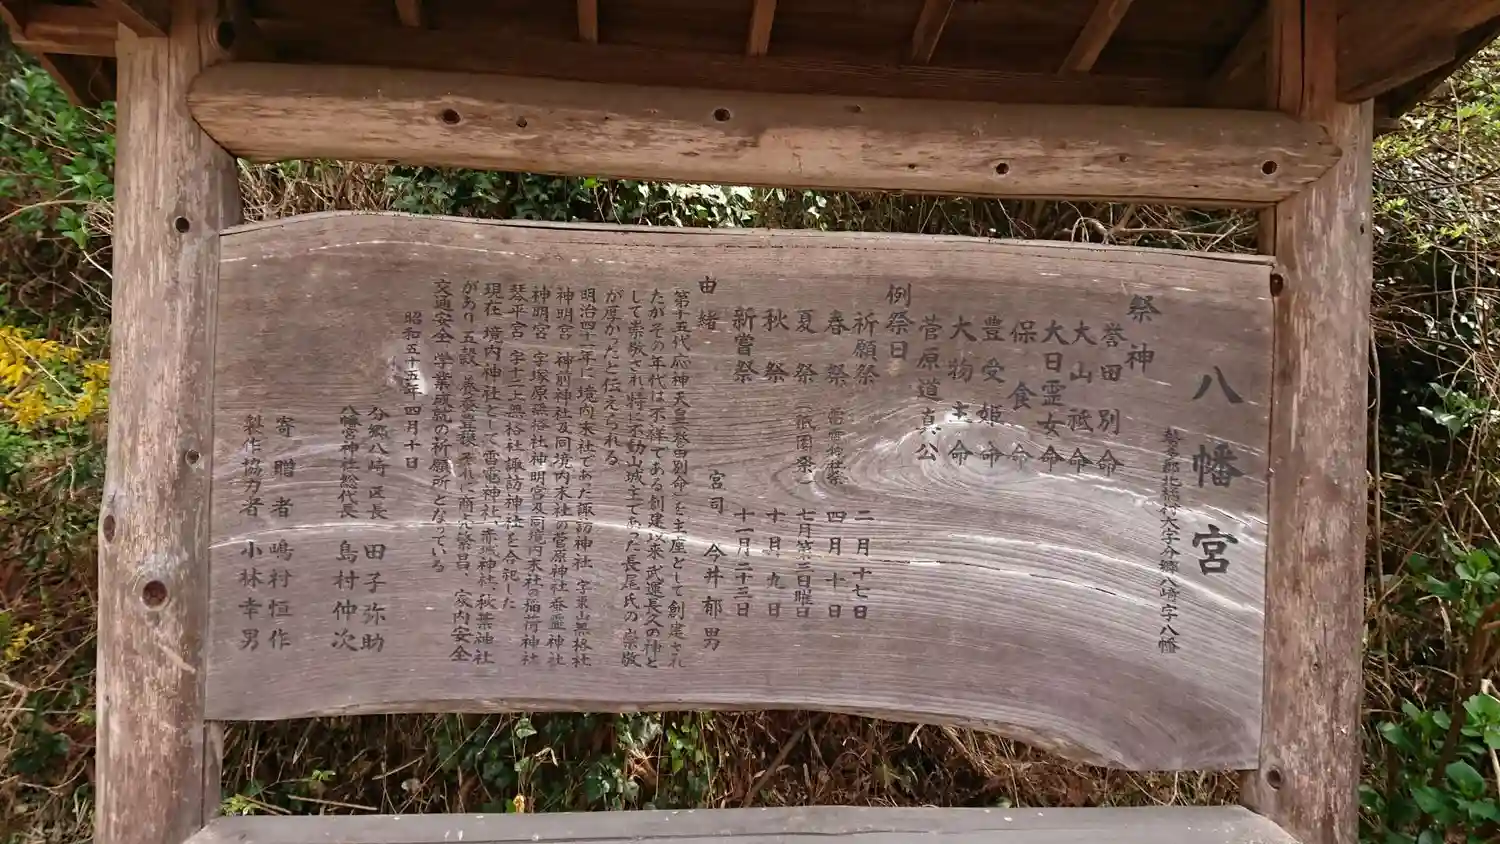 八幡宮
勢多郡北橘村大字分郷八崎字八幡
祭神
誉田別命
大山祗命
大日霊女命
保食命
豊受姫命
大物主命
菅原道真公
例祭日
祈願祭 二月十七日
春祭 四月十日
夏祭(祇園祭) 七月第三日曜日
秋祭 十月九日
新嘗祭 十一月二十三日
宮司 今井郁男
由緒
第十五代応神天皇(誉田別命)を主座として創建され
たがその年代は不詳である創建以来武運長久の神と
して崇敬され特に不動山城主であった長尾氏の崇敬
が厚かったと伝えられる
明治四十一年に境内末社であった諏訪神社 字東山無格社
神明宮 神前神社及同境内末社の菅原神社 神社
神明宮 字塚原無格社神明宮及同境内末社の稲荷神社
琴平宮 字十二無格社諏訪神社を合祀した
現在 境内神社として雷電神社、赤城神社、秋葉神社
があり五穀 養蚕豊穣それに商売繁昌、家内安全
交通安全 学業成就の祈願所となっている
昭和五十五年四月十日
分郷八崎区長 田子弥助
八幡宮神社総代長 島村仲次
寄贈者 嶋村恒作
製作協力者 小林幸男